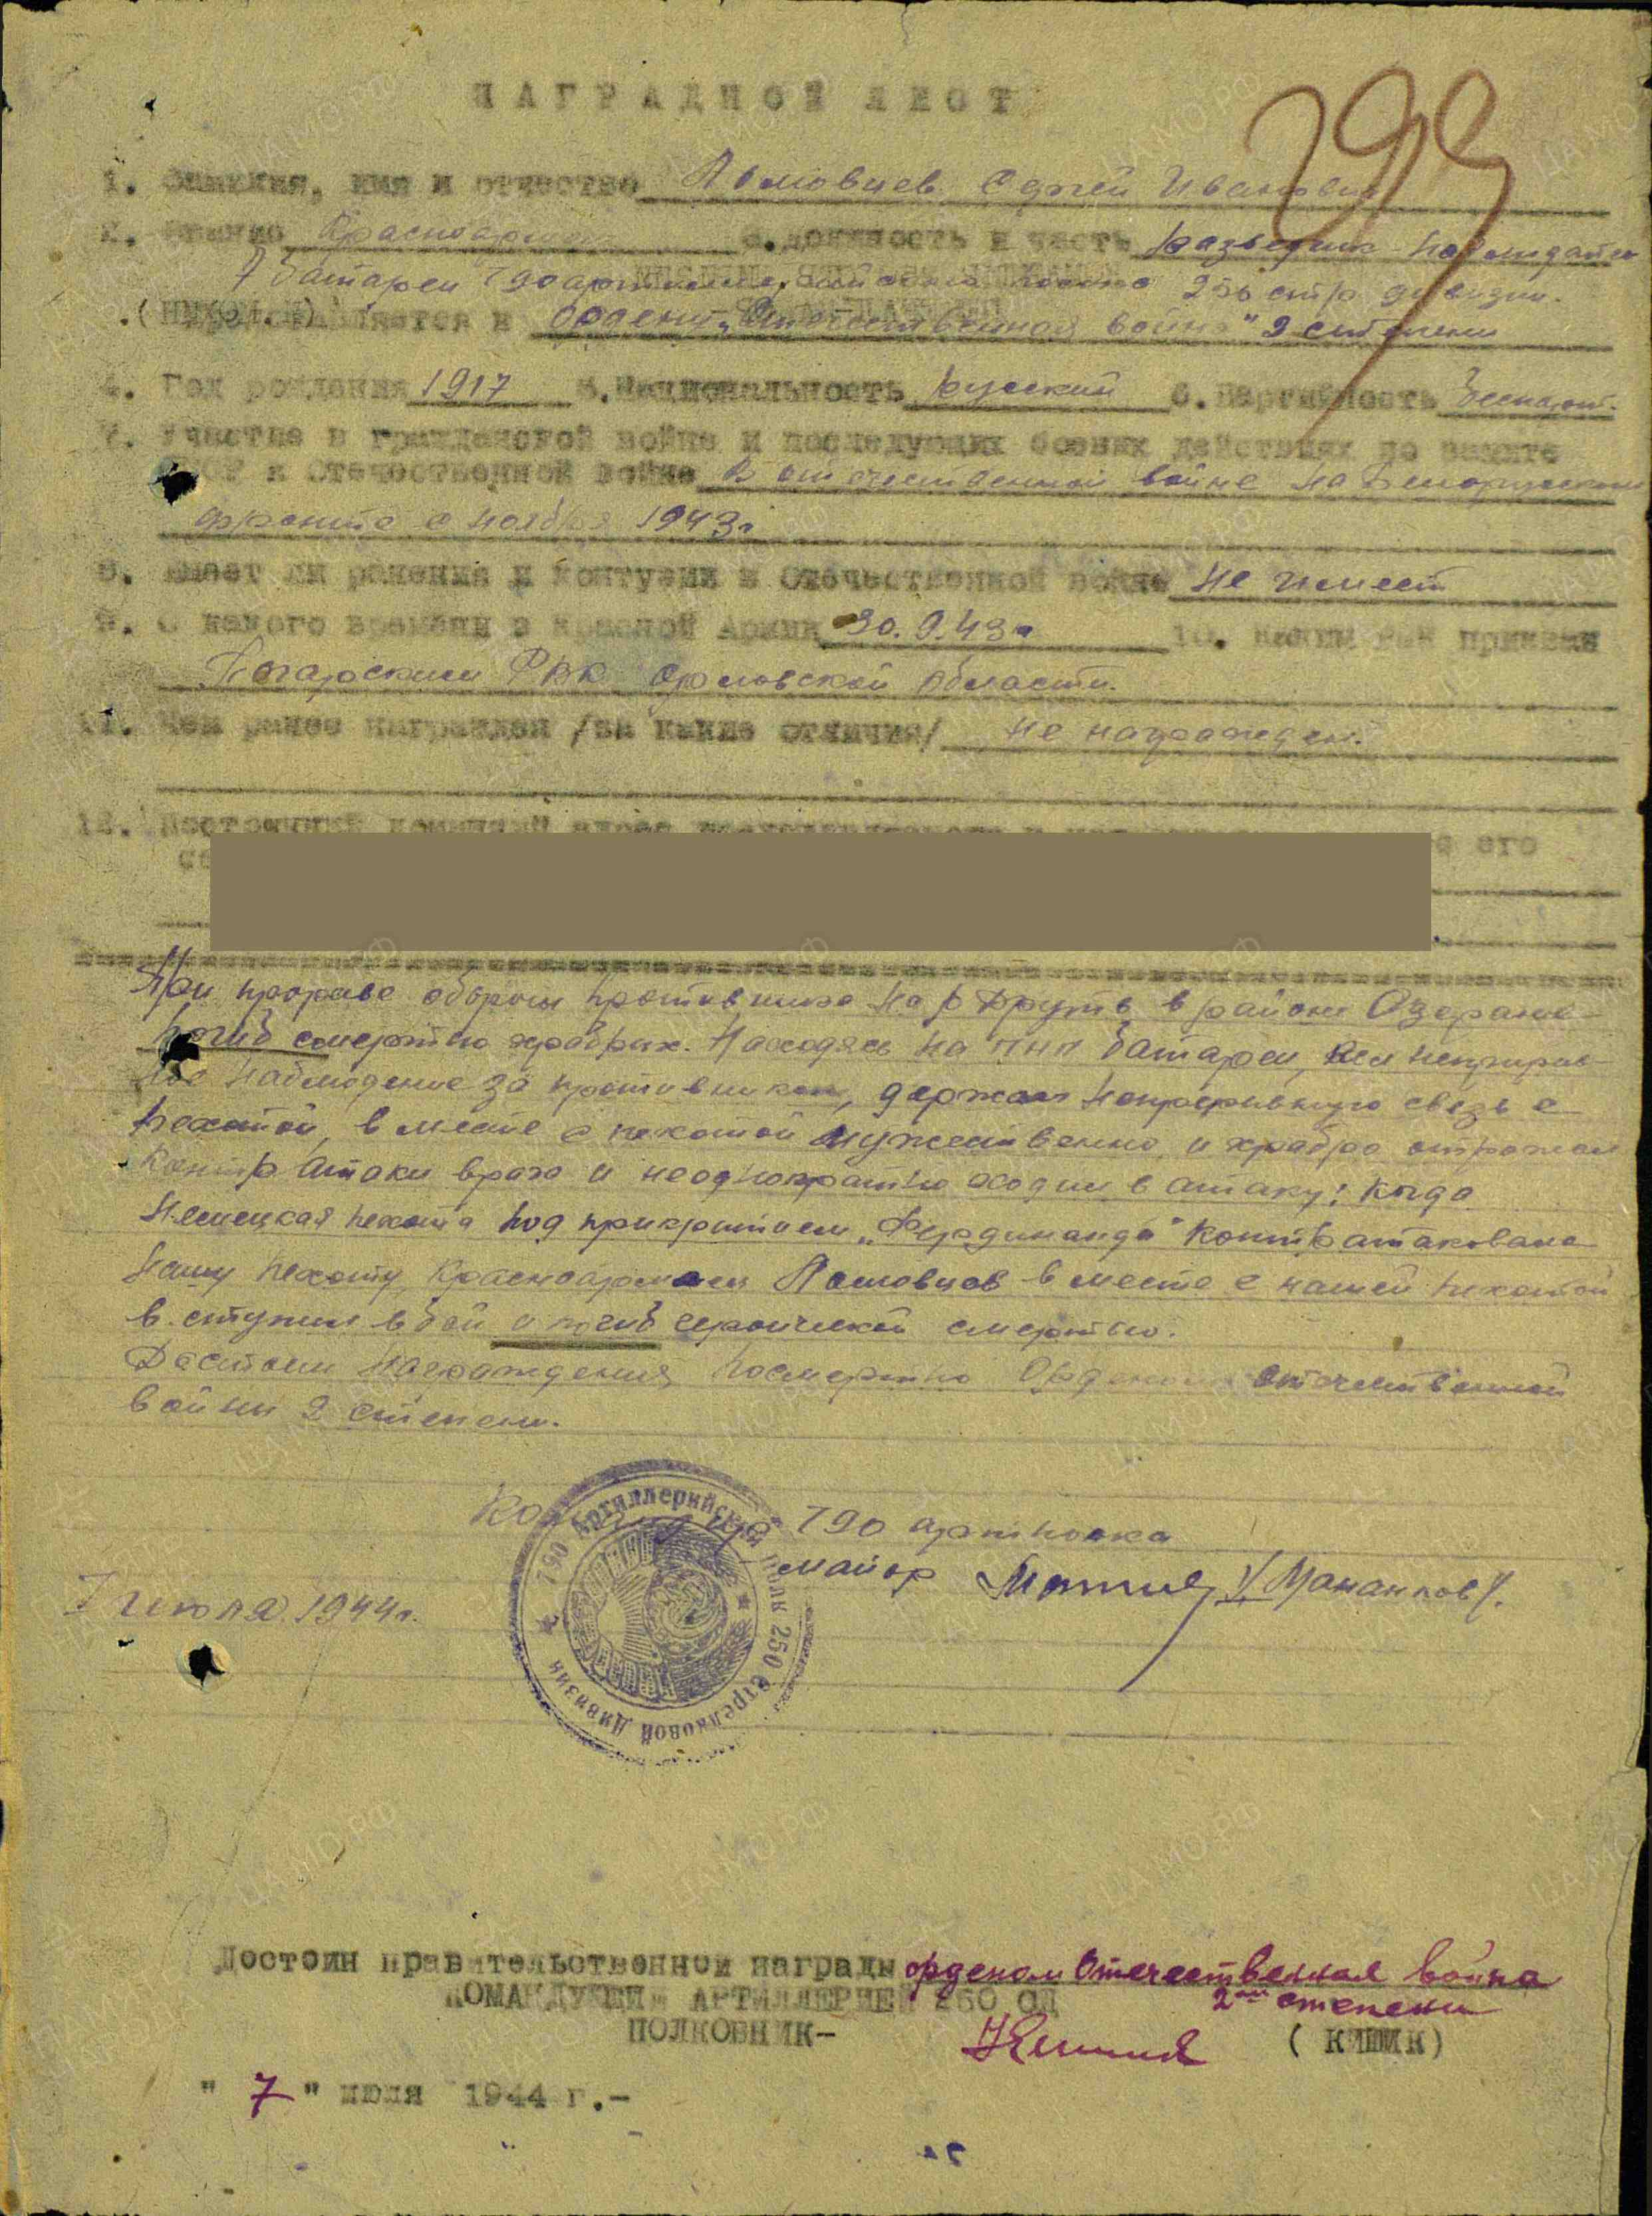 НАГРАДНОЙ ЛИСТ
1. Фамилия, имя и отчество Сергей Иванович
2. Звание Красноармеец 3. должность и часть разведчик-наблюдатель
7 батареи 790 артиллерийского полка 250 стр. дивизии.
Представляется к ордену "Отечественная война" 2 степени
4. Год рождения 1917 5. Национальность русский 6. Партийность беспарт.
7. Участие в гражданской войне и последующих боевых действиях по защите
СССР и Отечественной войне В отечественной войне на Белорусском
фронте с ноября 1943г.
8. Имеет ли ранения и контузии в Отечественной войне не имеет
9. С какого времени в Красной Армии 30.9.43г 10. Каким РВК призван
Погарским РВК Орловской области.
11. Чем ранее награжден /за какие отличия/ не награжден.
12. Постоянный домашний адрес его
При прорыве обороны противника на р Друть в районе Озеране
погиб смертью храбрых. Находясь на пнп батареи, вел непрерыв-
ное наблюдение за противником, держал непрерывную связь с
пехотой, в месте с пехотой мужественно и храбро отражал
контр атаки врага и неоднократно ходил в атаку; когда
немецкая пехота под прикрытием "Фердинанда" контратаковала
нашу пехоту, красноармеец в месте с нашей пехотой
в ступил в бой и погиб героической смертью.
Достоин награждения посмертно Орденом отечественной
войны 2 степени.
Командир 790 артполка
майор /Мананков/.
7 июля 1944г.
790 Артиллерийский полк 250 Стрелковой Дивизии
Достоин правительственной награды орденом Отечественная война
2ой степени
КОМАНДУЮЩИЙ АРТИЛЛЕРИЕЙ 250 СД
ПОЛКОВНИК- (КИШИК)
"7" июля 1944 г.-
ЦАМО.РФ